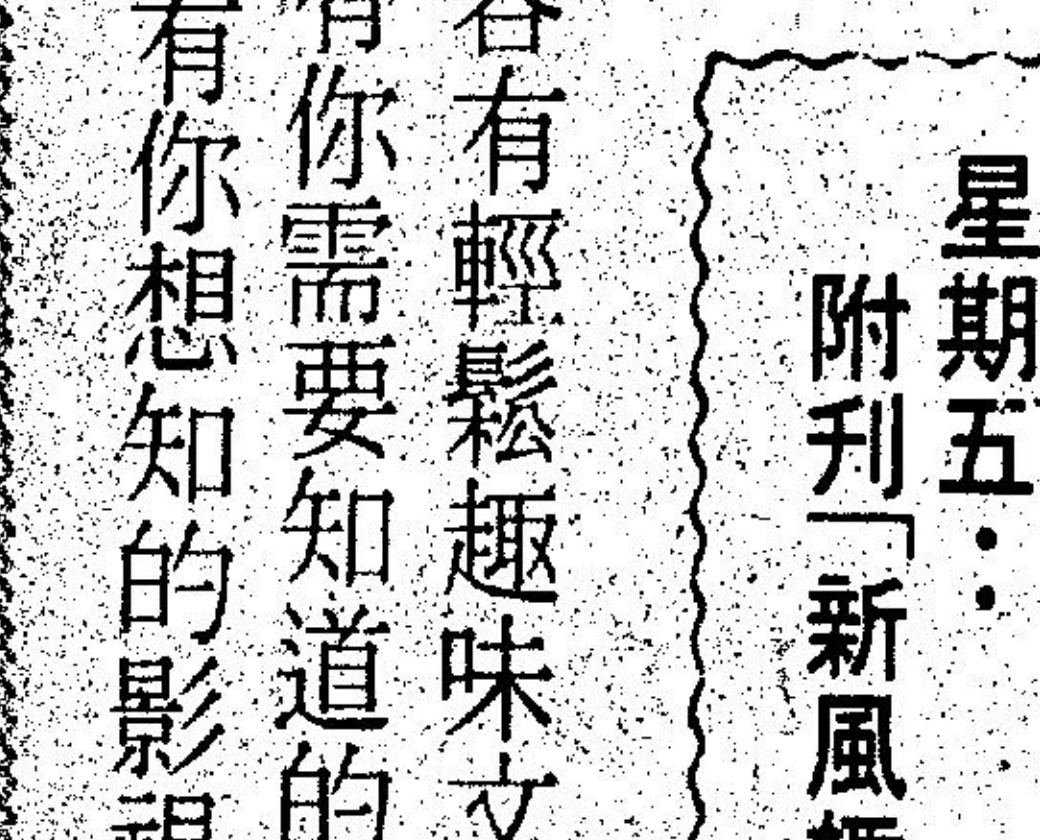 星期五：
附刊「新風
容有輕鬆趣味文
有你需要知道的
有你想知的影視